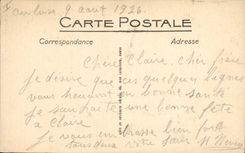 Toulouse 9 août 1926.
CARTE POSTALE
Correspondance
Adresse
Chère Claire, cher
je désire que ces quelques lignes
vous en bonne santé
je souhaite une bonne fête
à Claire
je vous embrasse bien fort
votre